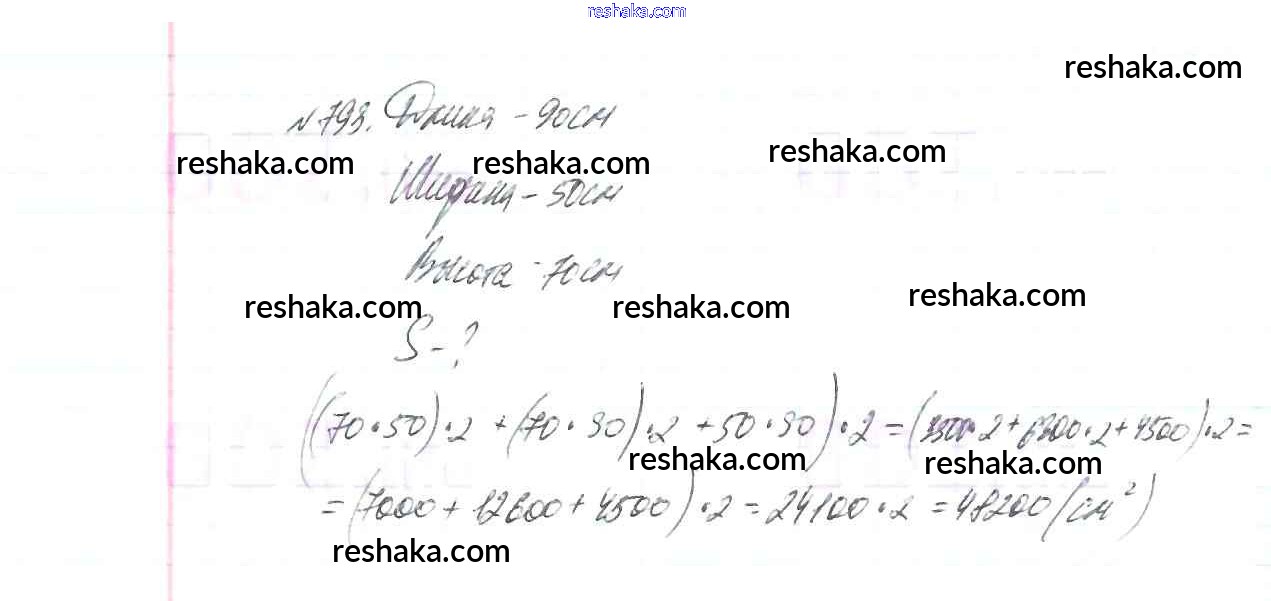 reshaka.com
reshaka.com
№793. Длина - 90см
reshaka.com reshaka.com reshaka.com
Ширина - 50см
Высота - 70см
reshaka.com reshaka.com reshaka.com
S - ?
((70·50)·2 + (70·90)·2 + 50·90)·2 = (3500·2 + 6300·2 + 4500)·2 =
reshaka.com reshaka.com
= (7000 + 12600 + 4500)·2 = 24100·2 = 48200 (см²)
reshaka.com